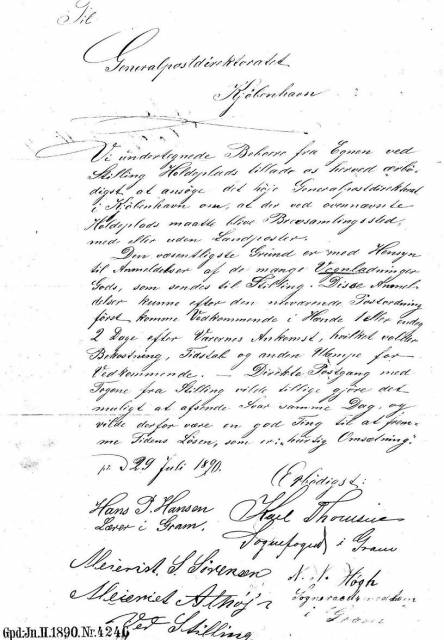 Til
Generalpostdirektoratet
Kjøbenhavn
Vi undertegnede Beboere fra Egnen ved
Stilling Holdeplads tillade os herved ærbø-
digst at ansøge det høje Generalpostdirektorat
i Kjøbenhavn om, at der ved ovennævnte
Holdeplads maatte blive Brevsamlingssted,
med eller uden Landposter.
Den væsentligste Grund er med Hensyn
til Anmeldelser af de mange Vognladninger
Gods, som sendes til Stilling. Disse Anmel-
delser kunne efter den nuværende Postordning
først komme Vedkommende i Hænde 1 eller endog
2 Dage efter Varernes Ankomst, hvilket volder
Bekostning, Tidstab og anden Ulempe for
Vedkommende. — Direkte Postgang med
Togene fra Stilling vilde tillige gjøre det
muligt at afsende Svar samme Dag, og
vilde derfor være en god Ting til at frem-
me Tidens Løsen, som er: "hurtig Omsætning."
29 Juli 1890.
Ærbødigst:
Hans P. Hansen
Lærer i Gram.
Karl Thomsen
Sognefoged i Gram
Meierist S. Sørensen
Meieriet Althøj
Ved Stilling
N. N. Høgh
Sogneraadsmedlem
i Gram
Gpd:Jn.II.1890.Nr.4246